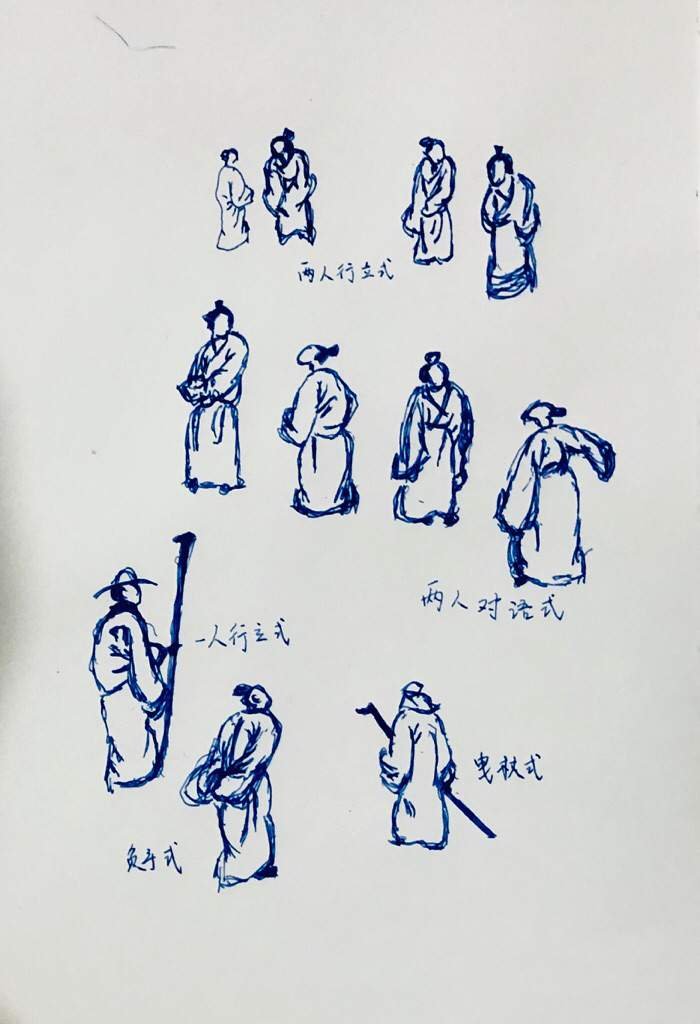 两人行立式
两人对语式
一人行立式
曳杖式
负手式